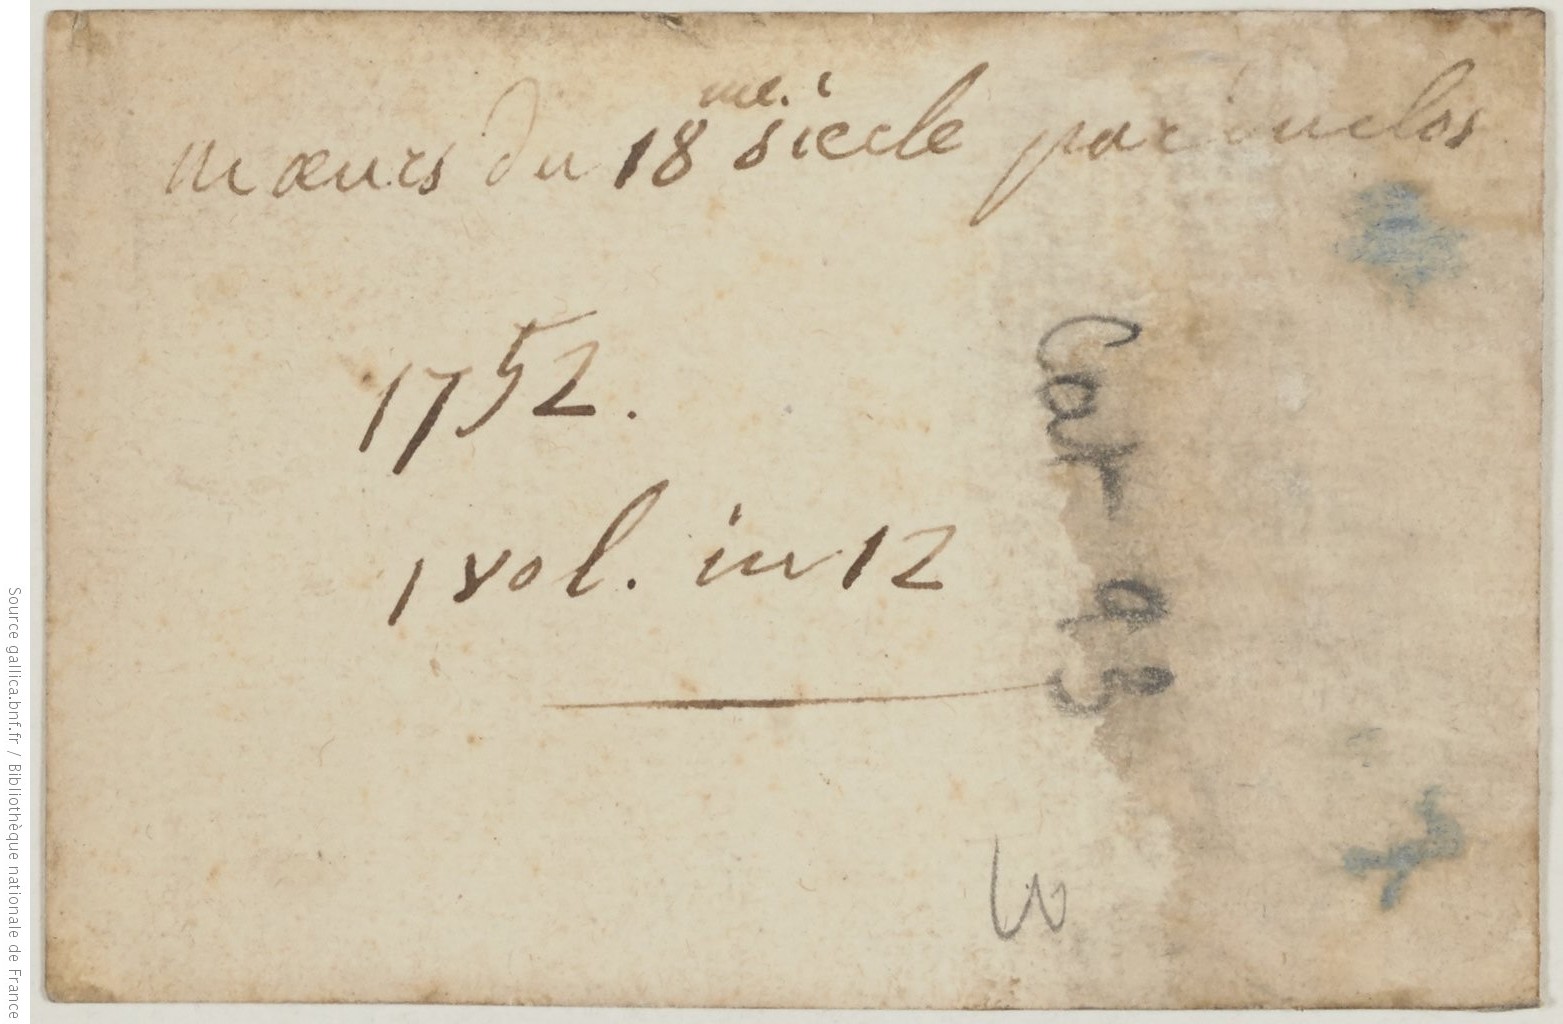 mœurs du 18me. siecle par duclos
1752.
1 vol. in 12
Car-93
Source gallica.bnf.fr / Bibliothèque nationale de France